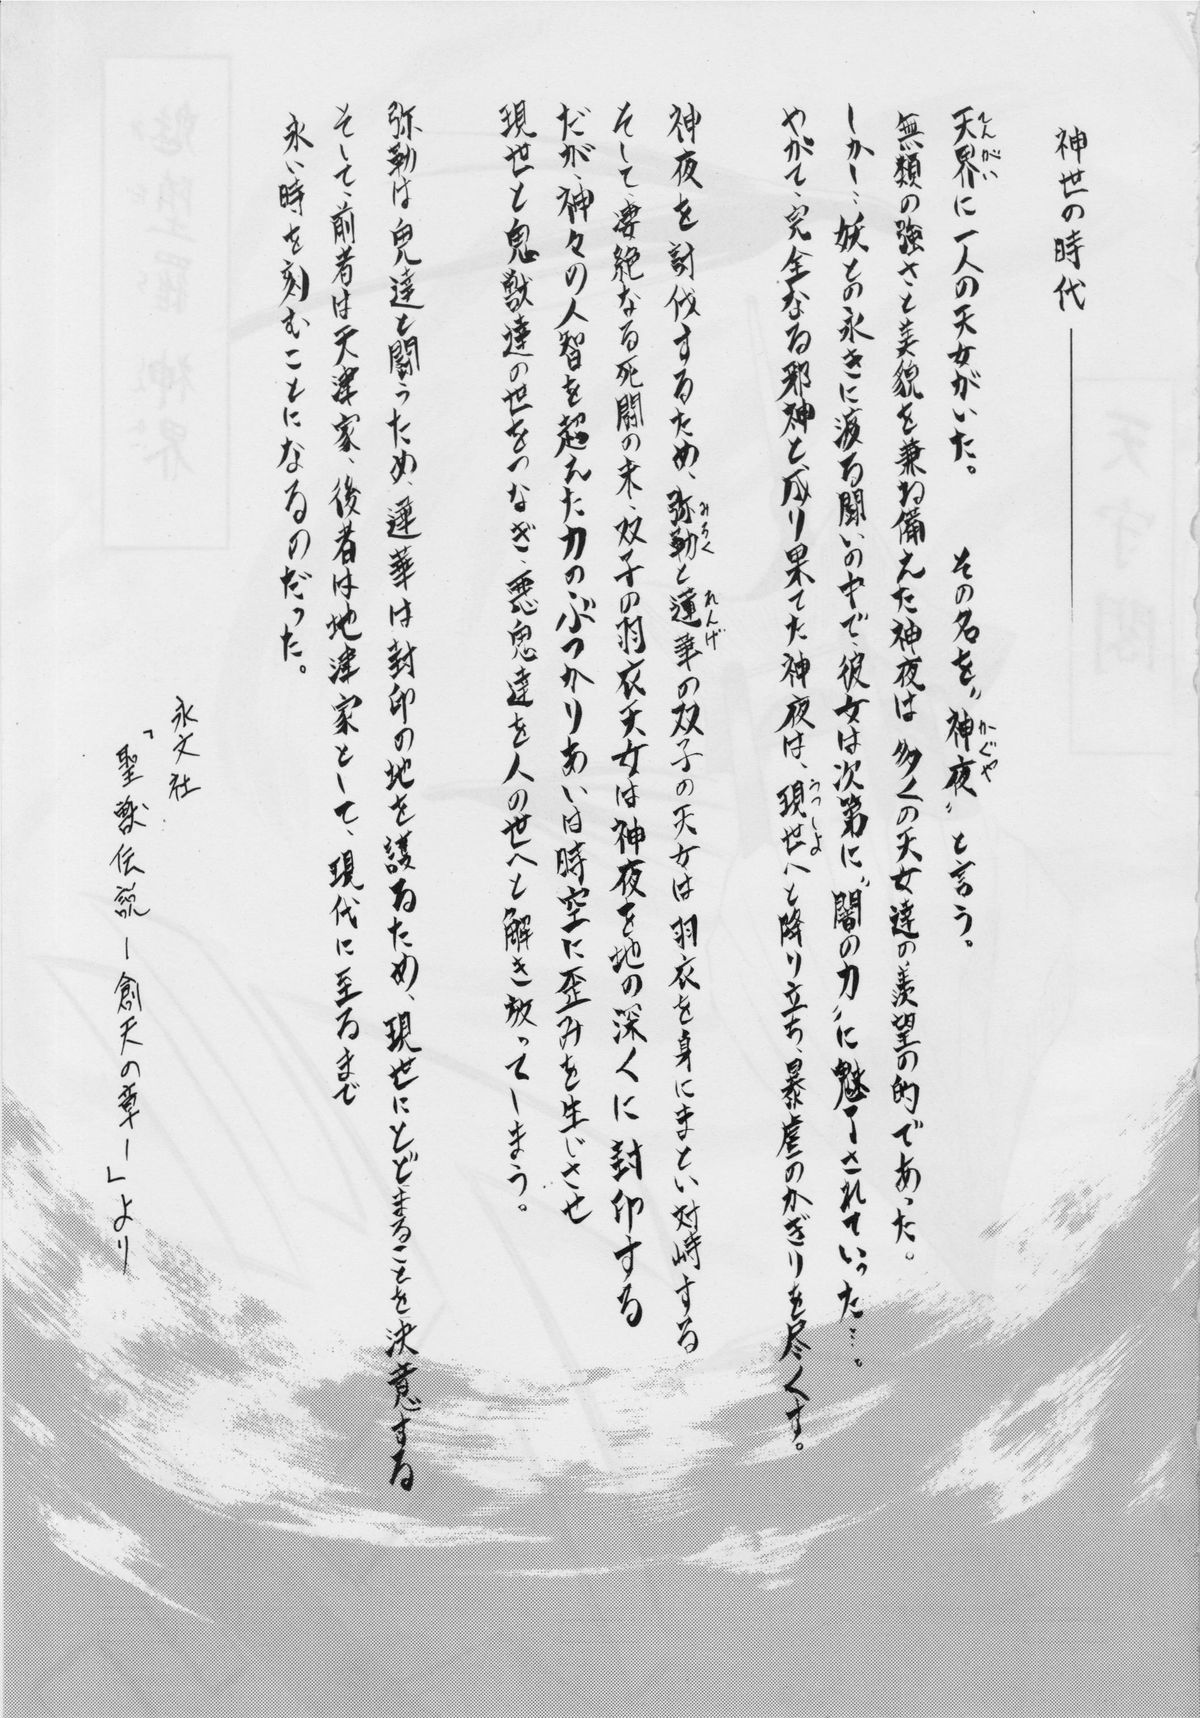 神世の時代――――――
天界に一人の天女がいた。　その名を〝神夜〟と言う。
てんかい
かぐや
無類の強さと美貌を兼ね備えた神夜は多くの天女達の羨望の的であった。
しかし…妖との永きに渡る闘いの中で、彼女は次第に〝闇の力〟に魅了されていった…。
やがて、完全なる邪神と成り果てた神夜は、現世へと降り立ち、暴虐のかぎりを尽くす。
うつしよ
神夜を討伐するため、弥勒と蓮華の双子の天女は羽衣を身にまとい対峙する
みろく
れんげ
そして凄絶なる死闘の末、双子の羽衣天女は神夜を地の深くに封印する
だが、神々の人智を超えた力のぶつかりあいは時空に歪みを生じさせ
現世と鬼獣達の世をつなぎ、悪鬼達を人の世へと解き放ってしまう。
弥勒は鬼達と闘うため、蓮華は封印の地を護るため、現世にとどまることを決意する
そして、前者は天津家、後者は地津家として、現代に至るまで
永い時を刻むことになるのだった。
永文社
「聖獣伝説 ー創天の章ー」より
魁堕羅神界
天守閣